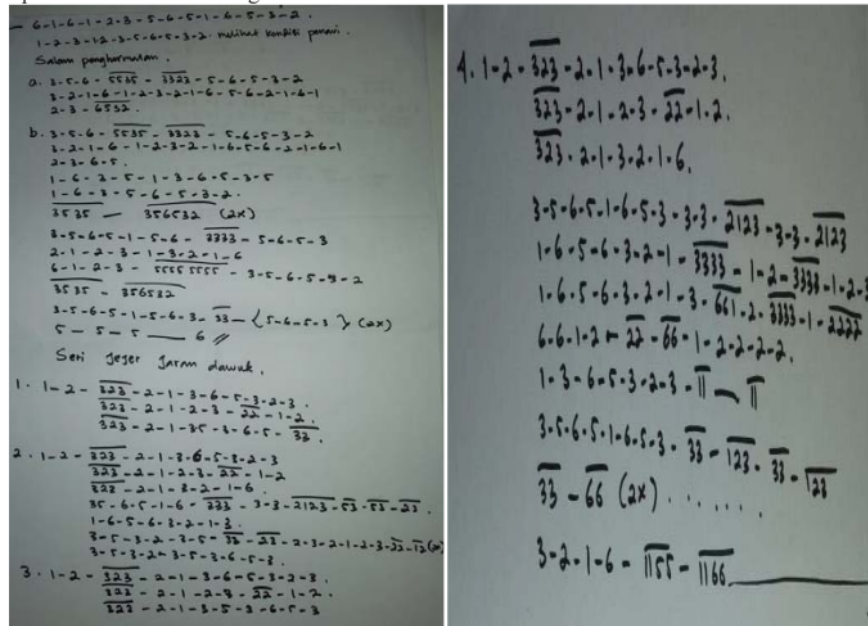 - 6-1-6-1-2-3-5-6-5-1-6-5-3-2.
1-2-3-1-2-3-5-6-5-3-2. melihat kondisi penari.
Salam penghormatan.
a. 3-5-6-5535-3323-5-6-5-3-2
3-2-1-6-1-2-3-2-1-6-5-6-2-1-6-1
2-3-6532.
b. 3-5-6-5535-3323-5-6-5-3-2
3-2-1-6-1-2-3-2-1-6-5-6-2-1-6-1
2-3-6-5.
1-6-3-5-1-3-6-5-3-5
1-6-3-5-6-5-3-2.
3535 — 356532 (2x)
3-5-6-5-1-5-6-3333-5-6-5-3
2-1-2-3-1-3-2-1-6
6-1-2-3-5555 5555-3-5-6-5-3-2
3535 - 356532
3-5-6-5-1-5-6-3-33-{5-6-5-3} (2x)
5 - 5 - 5 — 6 //
Seri Jejer Jaran dawuk.
1. 1-2-323-2-1-3-6-5-3-2-3.
323-2-1-2-3-22-1-2.
323-2-1-35-3-6-5-33.
2. 1-2-323-2-1-3-6-5-3-2-3
323-2-1-2-3-22-1-2
323-2-1-3-2-1-6.
35-6-5-1-6-333-3-3-2123-53-53-23.
1-6-5-6-3-2-1-3.
3-5-3-2-3-5-33-23-2-3-2-1-2-3-22-12(2x)
3-5-3-2-3-5-3-6-5-3.
3. 1-2-323-2-1-3-6-5-3-2-3.
323-2-1-2-3-22-1-2.
323-2-1-3-5-3-6-5-3
4. 1-2-323-2-1-3-6-5-3-2-3.
323-2-1-2-3-22-1-2.
323-2-1-3-2-1-6.
3-5-6-5-1-6-5-3-3-3-2123-3-3-2123
1-6-5-6-3-2-1-3333-1-2-3333-1-2-3
1-6-5-6-3-2-1-3-661-2-3333-1-2222
6-6-1-2-22-66-1-2-2-2-2.
1-3-6-5-3-2-3-11 — 11
3-5-6-5-1-6-5-3-33-123-33-123
33-66 (2x) ......
3-2-1-6-1155-1166